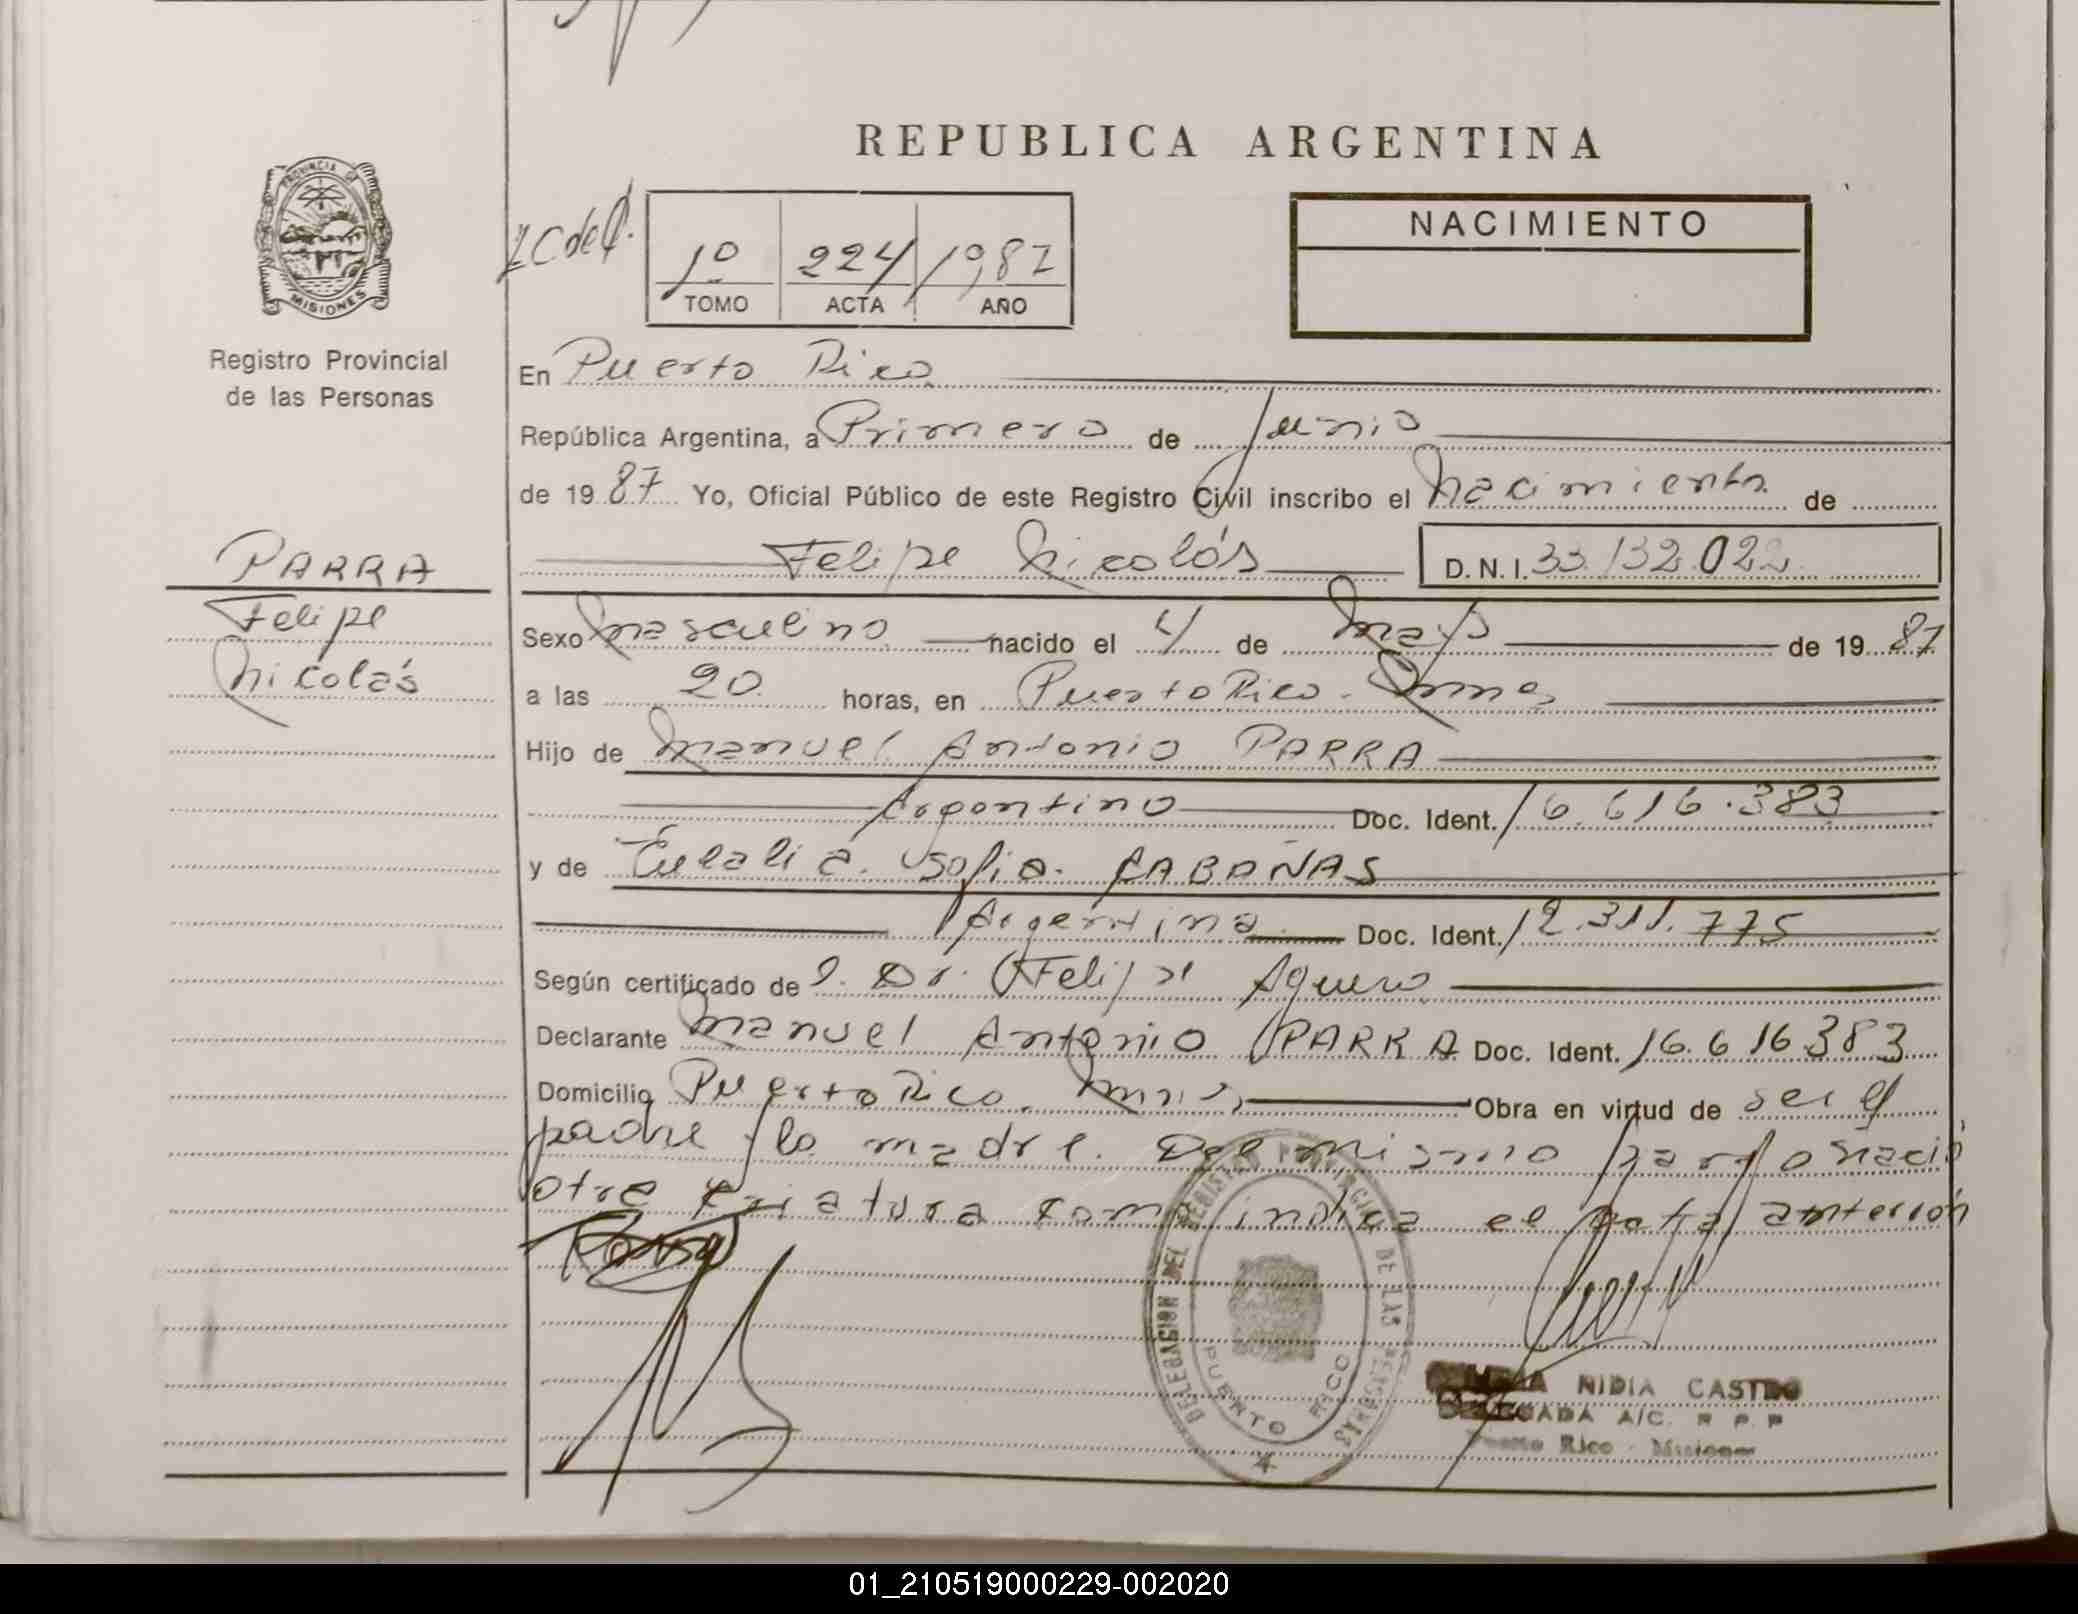 REPUBLICA ARGENTINA
PROVINCIA DE
MISIONES
Registro Provincial
de las Personas
1º 224 1987
TOMO ACTA AÑO
NACIMIENTO
En Puerto Rico
República Argentina, a Primero de Junio
de 1987 Yo, Oficial Público de este Registro Civil inscribo el Nacimiento de
Felipe Nicolás D.N.I. 33.132.022
PARRA
Felipe
Nicolás
Sexo Masculino nacido el 4 de Mayo de 1987
a las 20 horas, en Puerto Rico. Mnes
Hijo de Manuel Antonio PARRA
Argentino Doc. Ident. 16.616.383
y de Eulalia Sofia CABAÑAS
Argentina Doc. Ident. 12.311.775
Según certificado de Dr. Felipe Aguero
Declarante Manuel Antonio PARRA Doc. Ident. 16.616.383
Domicilio Puerto Rico. Mnes Obra en virtud de ser el
padre y la madre. Del mismo parto nació
otra criatura como indica el acta anterior
DELEGACION DEL REGISTRO PROVINCIAL DE LAS PERSONAS
PUERTO RICO
NIDIA CASTRO
DELEGADA A/C. R P P
Puerto Rico - Misiones
01_210519000229-002020